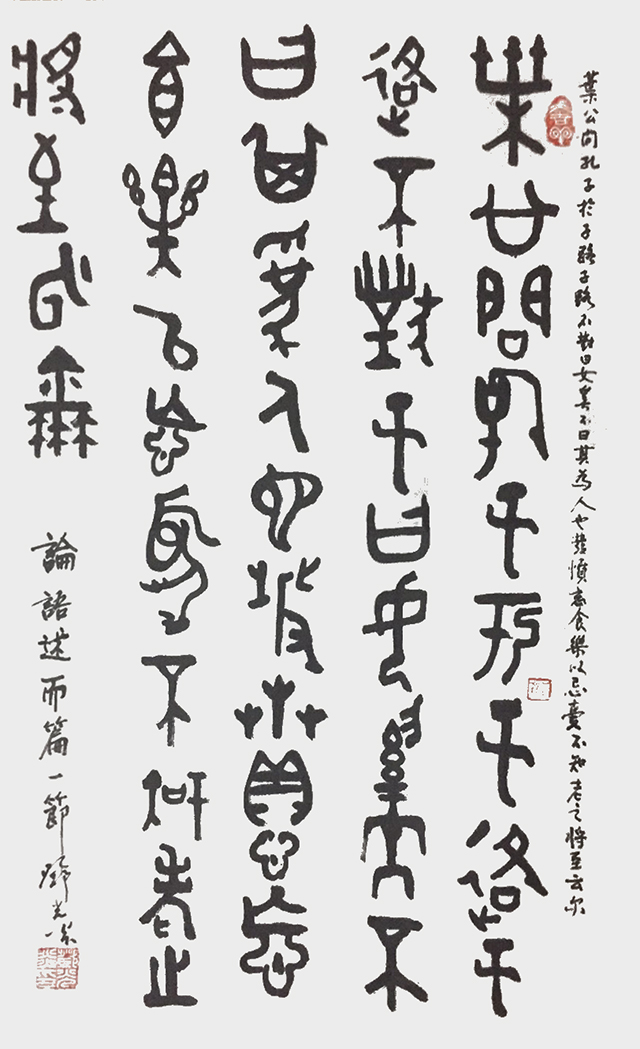 葉公问孔子於子路子路不對曰女奚不曰其為人也發憤忘食樂以忘憂不知老之将至云尔
葉公問孔子於子路子
路不對子曰女奚不
曰其為人也發憤忘
食樂以忘憂不知老之
將至云爾
論語述而篇一節鄧光